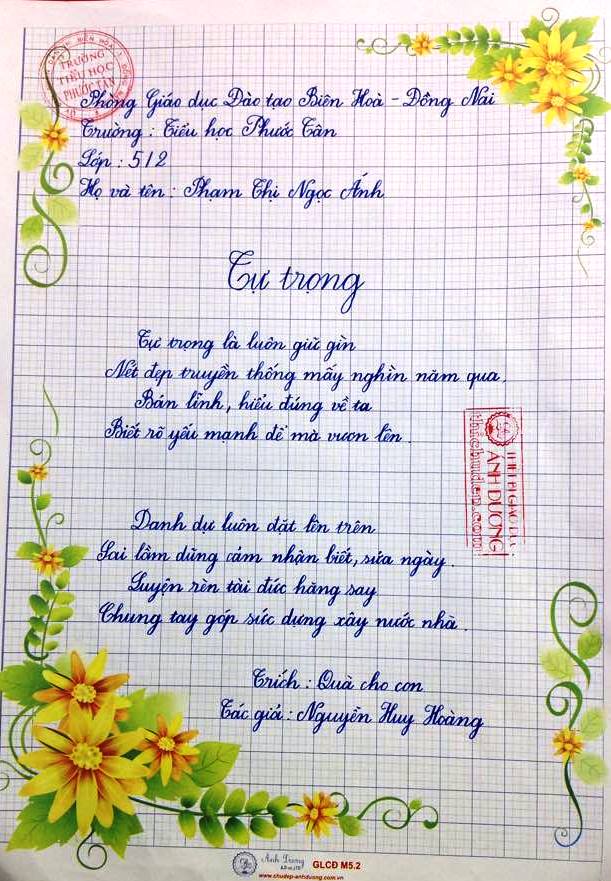 TRƯỜNG
TIỂU HỌC
PHƯỚC TÂN
Phòng Giáo dục Đào tạo Biên Hoà - Đồng Nai
Trường : Tiểu học Phước Tân
Lớp : 5/2
Họ và tên : Phạm Thị Ngọc Ánh
Tự trọng
Tự trọng là luôn giữ gìn
Nét đẹp truyền thống mấy nghìn năm qua.
Bản lĩnh, hiểu đúng về ta
Biết rõ yếu mạnh để mà vươn lên.
Danh dự luôn đặt lên trên
Sai lầm dũng cảm nhận biết, sửa ngay.
Luyện rèn tài đức hăng say
Chung tay góp sức dựng xây nước nhà.
Trích : Quà cho con
Tác giả : Nguyễn Huy Hoàng
ÁNH DƯƠNG
Ánh Dương
GLCĐ M5.2
www.chudep-anhduong.com.vn